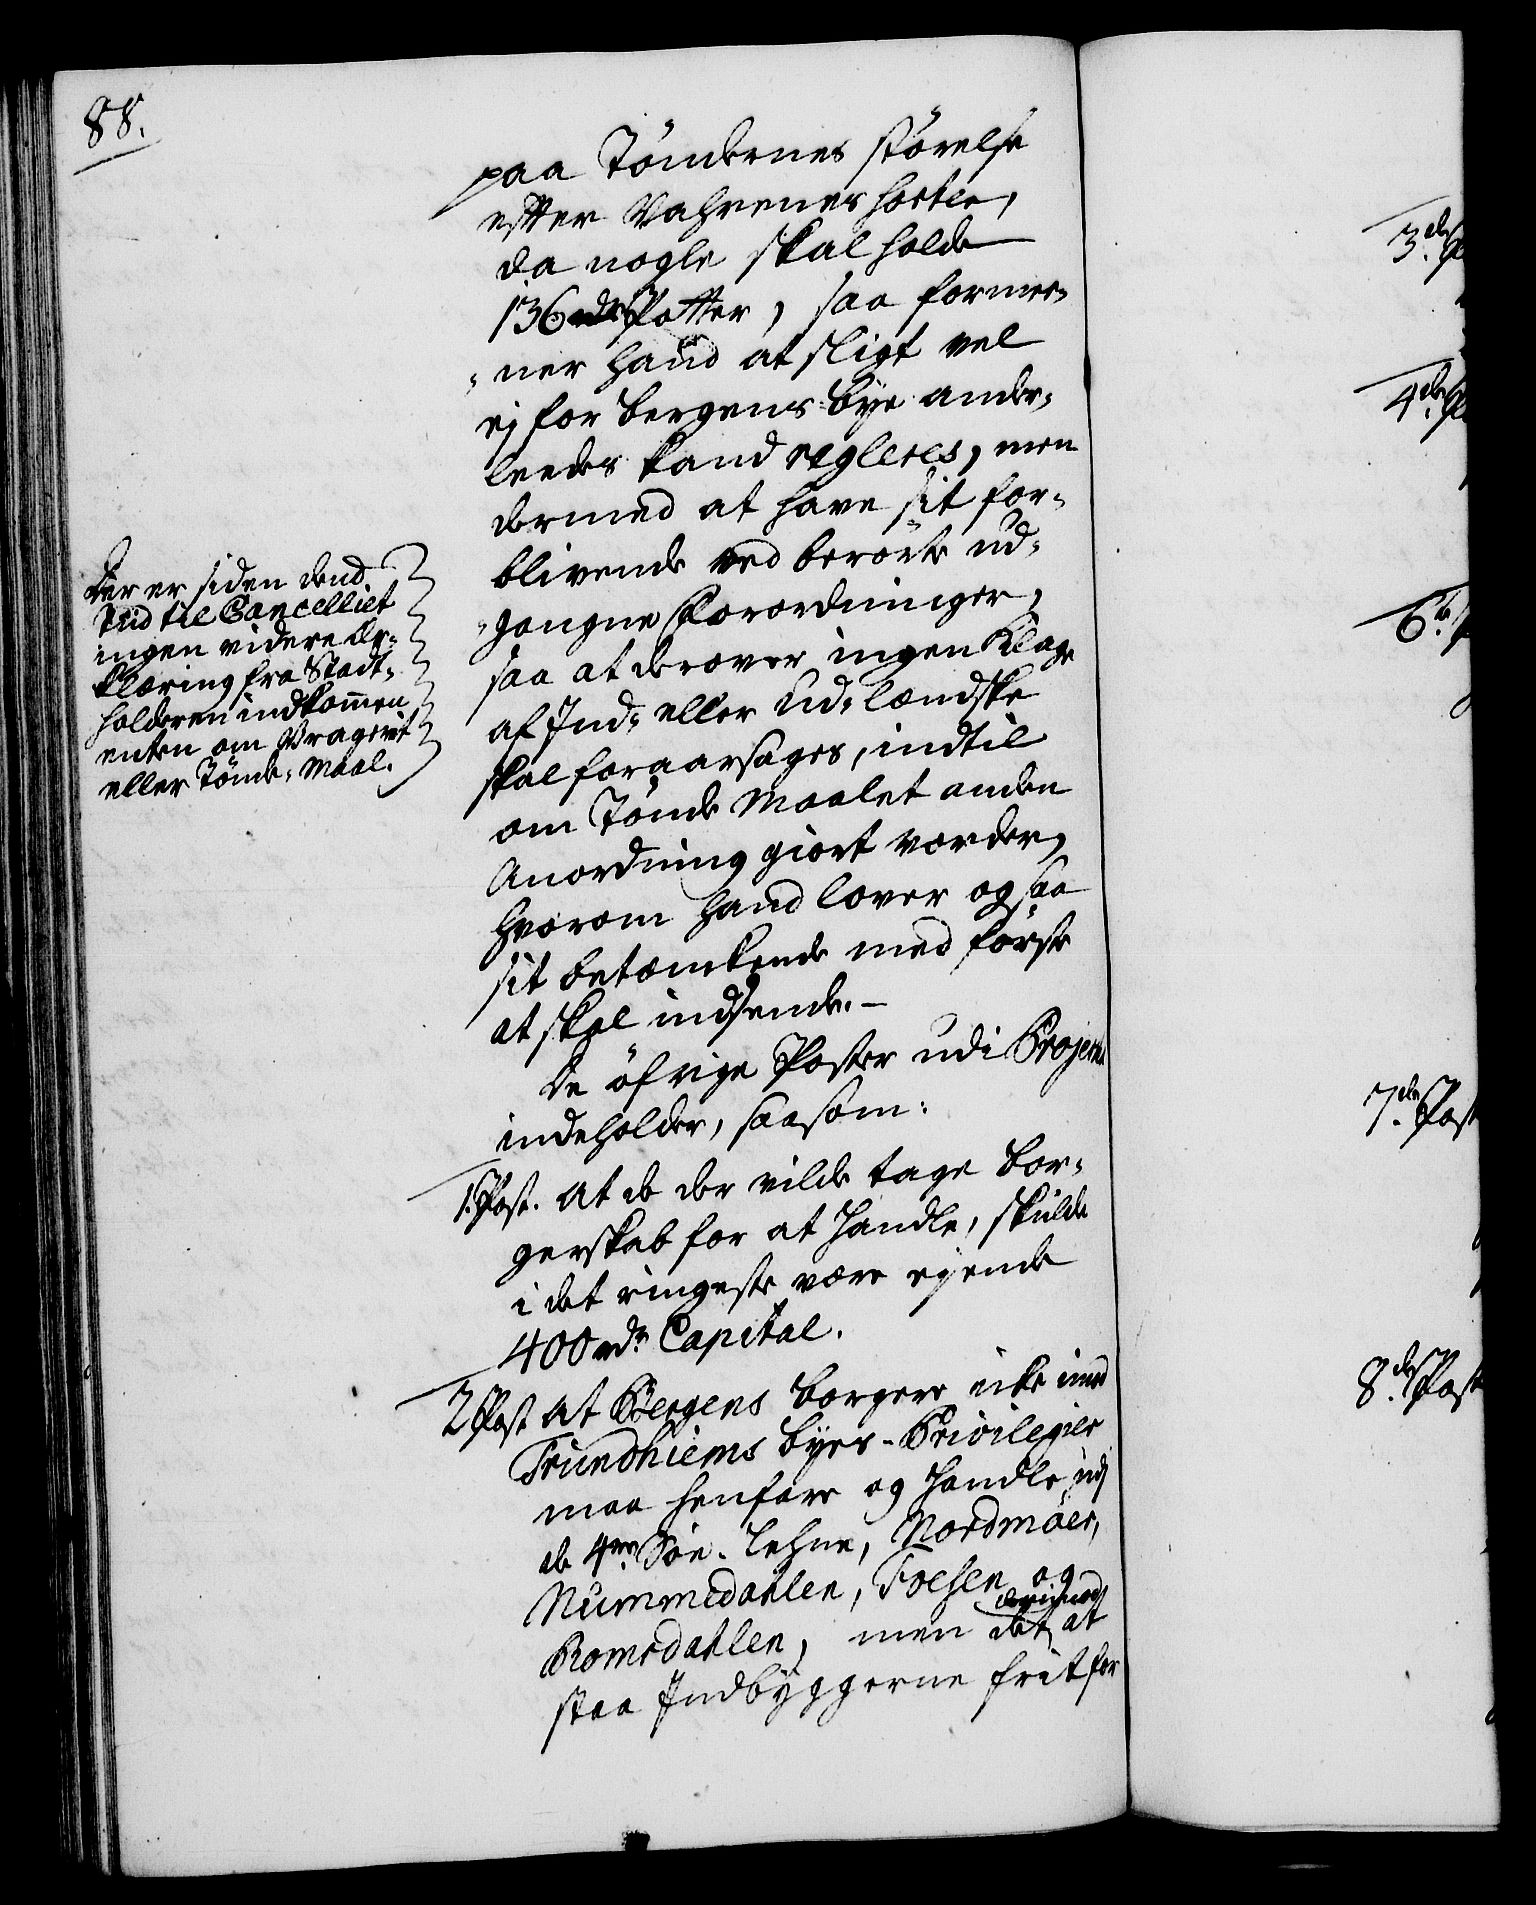 88.
paa Töndernes störelse
efter Vahrenes sorter,
da nogle skal holde
136 Potter, saa formee-
ner hand at sligt vel
ej for bergens bye ander-
leedes kand regleres, men
dermed at have sit for-
blivende ved berörte ud-
gangne Forordninger,
saa at derover ingen Klage
af Ind- eller Udlændske
skal foraarsages, indtil
om Tönde Maalet anden
Anordning giort vorder,
hvorom hand lover ogsaa
sit betænkende med förste
at skal indsende.-
De öfrige Poster udi Projectet
indeholder, saasom:
1. Post. at de der vilde tage bor-
gerskab for at Handle, skulde
i det ringeste være eyende
400 rdr Capital.
2 Post at Bergens borgere icke imod
Trundhiems byes Privilegier
maa henfare og handle udj
de 4re Söe-Lehne, Nordmöer,
Nummedahlen, Foesen og
Romsdahlen, men det at
staa Indbyggerne frit for
Der er siden dend
Tiid til Cancelliet
ingen videre Er-
klæring fra Stadt-
holderen indkommen
enten om Vrageriet
eller Tönde-Maal.
3de P
4de P
6te P
7de Post
8de Post